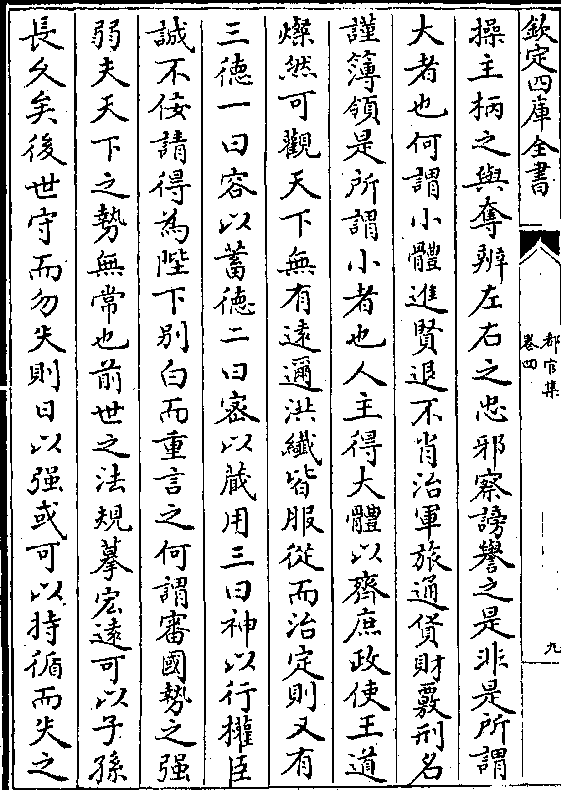 欽定四庫全書
都官集
卷四
九
操主柄之與奪辨左右之忠邪察謗譽之是非是所謂
大者也何謂小體進賢退不肖治軍旅通貨財覈刑名
謹簿領是所謂小者也人主得大體以齊庶政使王道
燦然可觀天下無有遠邇洪纖皆服從而治定則又有
三德一曰容以蓄德二曰密以蔵用三曰神以行權臣
誠不佞請得為陛下别白而重言之何謂審國勢之强
弱夫天下之勢無常也前世之法規摹宏逺可以子孫
長久矣後世守而勿失則日以强或可以持循而失之